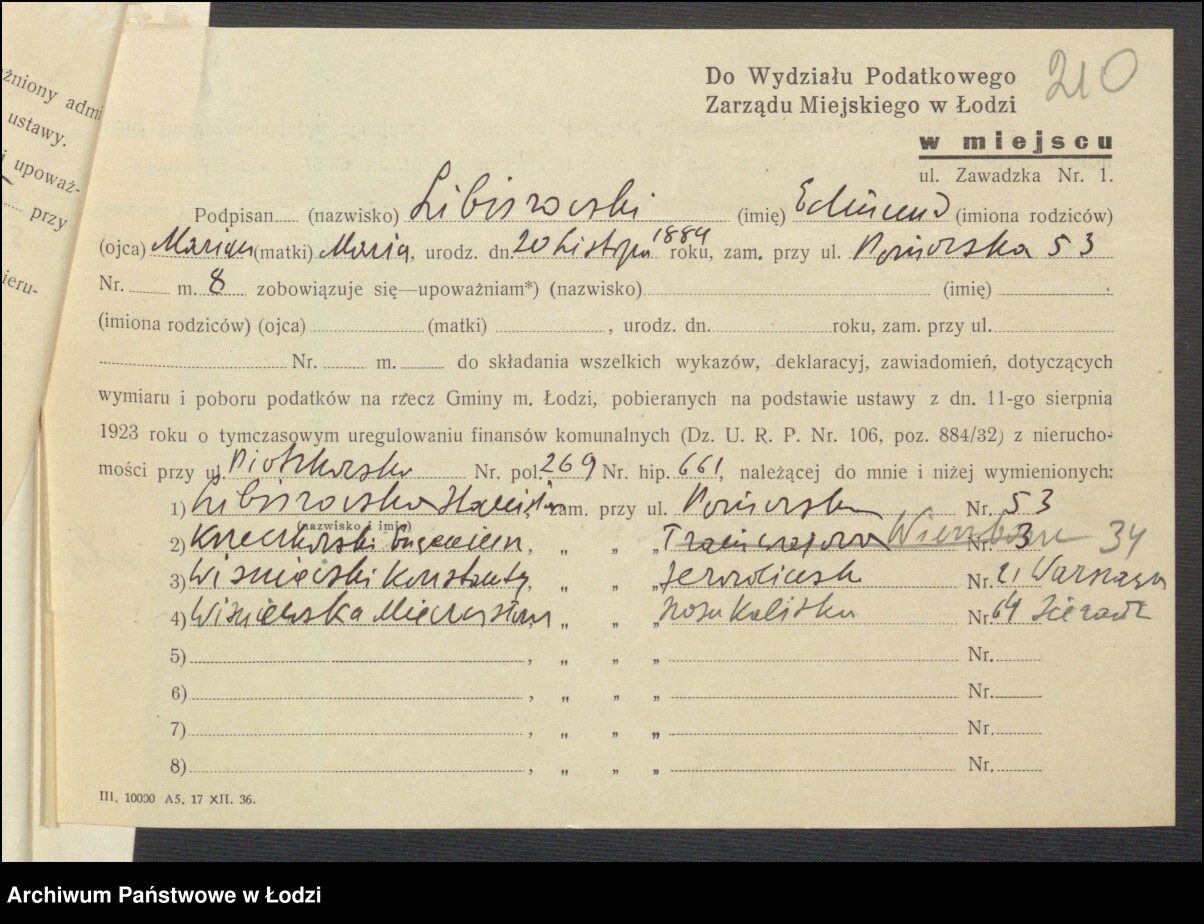 źniony admi
ustawy.
i upoważ-
przy
ieru-
210
Do Wydziału Podatkowego
Zarządu Miejskiego w Łodzi
w miejscu
ul. Zawadzka Nr. 1.
Podpisan..... (nazwisko) Libiszowski (imię) Edmund (imiona rodziców)
(ojca) Marian (matki) Maria, urodz. dn. 20 Listopa 1884 roku, zam. przy ul. Pomorska 53
Nr. ........ m. 8 zobowiązuje się—upoważniam*) (nazwisko) (imię)
(imiona rodziców) (ojca) (matki) , urodz. dn. roku, zam. przy ul.
Nr. ........ m. ........ do składania wszelkich wykazów, deklaracyj, zawiadomień, dotyczących
wymiaru i poboru podatków na rzecz Gminy m. Łodzi, pobieranych na podstawie ustawy z dn. 11-go sierpnia
1923 roku o tymczasowym uregulowaniu finansów komunalnych (Dz. U. R. P. Nr. 106, poz. 884/32) z nierucho-
mości przy ul. Piotrkowska Nr. pol. 269 Nr. hip. 661, należącej do mnie i niżej wymienionych:
1) Libiszowska zam. przy ul. Pomorska Nr. 53
(nazwisko i imię)
2) Eugeniusz, „ „ „ Nr. 3 34
3) Wiśniewski Konstanty, „ „ „ Nr. 21 Warszawa
4) Wiśniewska Mieczysława, „ „ „ Kaliska Nr. 64 Sieradz
5) , „ „ „ Nr.
6) , „ „ „ Nr.
7) , „ „ „ Nr.
8) , „ „ „ Nr.
III. 10000 A5. 17 XII. 36.
Archiwum Państwowe w Łodzi